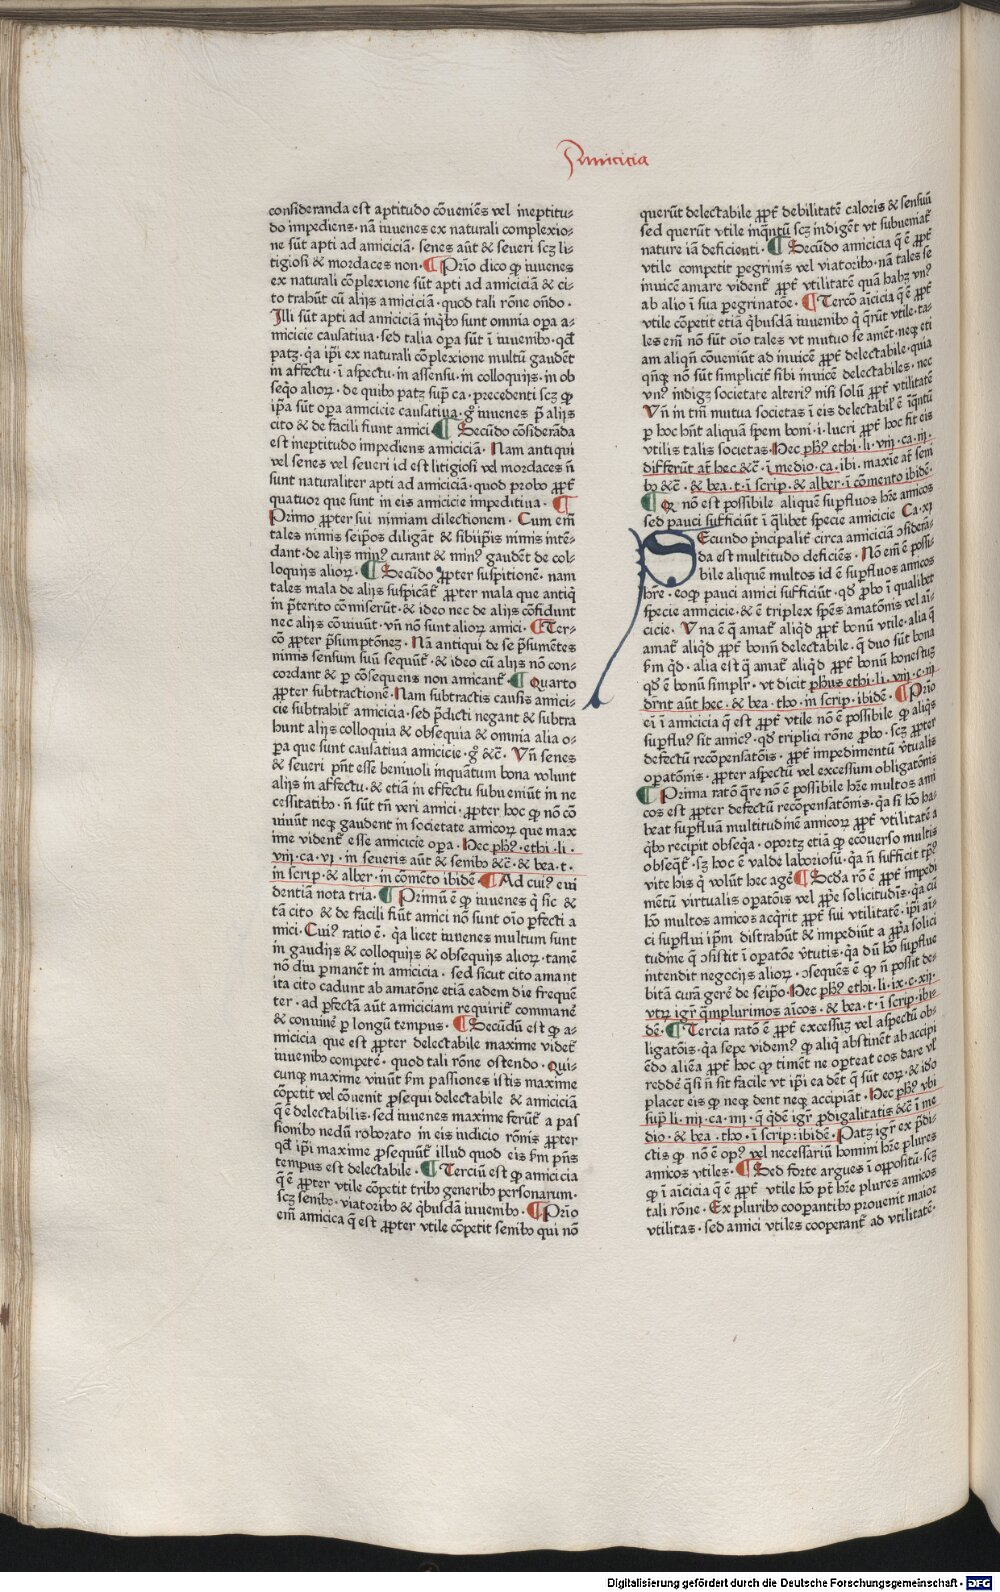 Amicicia
consideranda est aptitudo cōueniēs vel ineptitu-
do impediens · nā iuuenes ex naturali complexio-
ne sūt apti ad amiciciā · senes aūt & seueri scꝫ li-
tigiosi & mordaces non · ¶ Pr̄io dico ꝙ iuuenes
ex naturali cōplexione sūt apti ad amiciciā & ci-
to trahūt cū alijs amiciciā · quod tali rōne oñdo ·
Illi sūt apti ad amiciciā inq̇bꝰ sunt omnia oꝑa a-
micicie causatiua · sed talia oꝑa sūt ī iuuenibꝰ · qd̄
patꝫ · q̇a ip̄i ex naturali cōplexione multū gaudēt
in affectu · ī aspectu · in assensu · in colloquijs · in ob
seq̇o alioꝝ · de quibꝰ patꝫ sup̄ ca · precedenti scꝫ ꝙ
ip̄a sūt opera amicicie causatiua · gͦ iuuenes p̄ alijs
cito & de facili fiunt amici ¶ Secūdo cōsiderāda
est ineptitudo impediens amiciciā · Nam antiqui
vel senes vel seueri id est litigiosi vel mordaces n̄
sunt naturaliter apti ad amiciciā · quod probo ꝓpt̄
quatuor que sunt in eis amicicie impeditiua · ¶
Primo ꝓpter sui nimiam dilectionem · Cum em̄
tales nimis seip̄os diligāt & sibiip̄is nimis intē-
dant · de alijs minꝰ curant & minꝰ gaudēt de col-
loquijs alioꝝ · ¶ Secūdo ꝓpter suspitionē · nam
tales mala de alijs suspicāt̄ ꝓpter mala que antiq̇
in p̄terito cōmiserūt · & ideo nec de alijs cōfidunt
nec alijs cōuiuūt · vn̄ nō sunt alioꝝ amici · ¶ Ter-
cō ꝓpter p̄sumptōneꝫ · Nā antiqui de se p̄sumētes
nimis sensum suū sequūt̄ · & ideo cū alijs nō con-
cordant & ꝑ cōsequens non amicant̄ · ¶ Quarto
ꝓpter subtractionē · Nam subtractis causis amici-
cie subtrahit̄ amicicia · sed p̄dicti negant & subtra
hunt alijs colloquia & obsequia & omnia alia o-
ꝑa que sunt causatiua amicicie · gͦ &c̄ · Vn̄ senes
& seueri pn̄t esse beniuoli inquātum bona volunt
alijs in affectu · & etiā in effectu subueniūt in ne
cessitatibꝰ · n̄ sūt tn̄ veri amici · ꝓpter hoc ꝙ nō cō
uiuūt neqꝫ gaudent in societate amicoꝝ que max
ime vident̄ esse amicicie opera · Hec ph̄ꝰ · ethi · li ·
viij · ca · vi · in seueris aūt & senibꝰ &c̄ · & bea · t ·
in scrip · & alber · in cōmēto ibidē · ¶ Ad cuiꝰ eui
dentiam nota tria · ¶ Primū ē ꝙ iuuenes q̇ sic &
tā cito & de facili fiūt amici nō sunt oīo ꝑfecti a
mici · Cuiꝰ ratio ē · q̇a licet iuuenes multum sunt
in gaudijs & colloquijs & obsequijs alioꝝ · tamē
nō diu ꝑmanēt in amicicia · sed sicut cito amant
ita cito cadunt ab amatōne etiā eadem die frequē
ter · ad ꝑfectā aūt amiciciam requirit̄ commanē
& conuiuē ꝑ longū tempus · ¶ Secūdū est ꝙ a-
micicia que est ꝓpter delectabile maxime videt̄
iuuenibꝰ competē · quod tali rōne ostendo · Qui-
cunqꝫ maxime viuūt ẜm passiones istis maxime
cōpetit vel cōuenit ꝓsequi delectabile & amiciciā
q̄ ē delectabilis · sed iuuenes maxime ferūt̄ a pas
sionibꝰ nedū roborato in eis iudicio rōnis ꝓpter
qd̄ ip̄i maxime ꝓsequūt̄ illud quod eis ẜm pn̄s
tempus est delectabile · ¶ Terciū est ꝙ amicicia
q̄ ē ꝓpter vtile cōpetit tribꝰ generibꝰ personarum ·
scꝫ senibꝰ · viatoribꝰ & q̇busdā iuuenibꝰ · ¶ Pr̄io
em̄ amicica q̄ est ꝓpter vtile cōpetit senibꝰ qui nō
querūt delectabile ꝓpt̄ debilitatē caloris & sensuū
sed querūt vtile inq̇ntū scꝫ indigēt vt subueniat̄
nature iā deficienti · ¶ Secūdo amicicia q̄ ē ꝓpt̄
vtile competit peregrinis vel viatoribꝰ · nā tales se
inuicē amare vident̄ ꝓpt̄ vtilitatē quā habꝫ vnꝰ
ab alio ī sua ꝑegrinatōe · ¶ Tercō aīcicia q̄ ē ꝓpt̄
vtile cōpetit etiā q̇busdā iuuenibꝰ q̇ q̄rūt vtile · ta-
les em̄ nō sūt oīo tales vt mutuo se amēt · neqꝫ eti
am aliqn̄ cōueniūt ad inuicē ꝓpt̄ delectabile · quia
qn̄qꝫ nō sūt simplicit̄ sibi inuicē delectabiles · nec
vnꝰ indigꝫ societate alteriꝰ nisi solū ꝓpt̄ vtilitatē
Vn̄ in tm̄ mutua societas ī eis delectabil̄ ē īq̇ntū
ꝑ hoc hn̄t aliquā spem boni · i · lucri ꝓpt̄ hoc fit eis
vtilis talis societas · Hec ph̄ꝰ ethi · li · viij · ca · iij ·
differūt at̄ hec &c̄ · ī medio · ca · ibi · maxīe at̄ seni
bꝰ &c̄ · & bea · t · ī scrip · & alber · ī cōmento ibidē ·
¶ Qꝙ nō est possibile aliquē suꝑfluos hr̄e amicos
sed pauci sufficiūt ī q̇libet specie amicicie Ca · xi
SEcundo pn̄cipalit̄ circa amiciciā ↄsiderā-
da est multitudo deficiēs · Nō em̄ ē possi-
bile aliquē multos id ē suꝑfluos amicos
hr̄e · eoqꝫ pauci amici sufficiūt · qd̄ ꝓbo ī qualibet
specie amicicie · & ē triplex sp̄es amatōnis vel aīi-
cicie · Vna ē q̄ amat̄ aliq̇d ꝓpt̄ bonū vtile · alia q̄
amat̄ aliq̇d ꝓpt̄ bonū delectabile · q̄ duo sūt bona
ẜm qd̄ · alia est q̄ amat̄ aliq̇d ꝓpt̄ bonū honestuꝫ
qd̄ ē bonū simplr̄ · vt dicit ph̄us ethi · li · viij · c · iij
dr̄nt aūt hec · & bea · tho · in scrip · ibidē · ¶ Pr̄io
ei ī amicicia q̄ est ꝓpt̄ vtile nō ē possibile ꝙ aliq̇s
suꝑfluꝰ sit amicꝰ · qd̄ triplici rōne ꝓbo · scꝫ ꝓpter
defectū recōpensatōis · ꝓpt̄ impedimentū v̄tualis
oꝑatōnis · ꝓpter aspectū vel excessum obligatōnis
¶ Prima ratō q̄re nō ē possibile hr̄e multos ami
cos est ꝓpter defectū recōpensatōnis · q̇a si hō ha-
beat suꝑfluā multitudinē amicoꝝ ꝓpt̄ vtilitatē a
q̇bꝰ recipit obseq̇a · oportꝫ etiā ꝙ ecōuerso multis
obseq̇t̄ · sꝫ hoc ē valde laboriosū · q̇a n̄ sufficit tp̄ꝰ
vite his q̇ volūt hec agē ¶ Scd̄a rō ē ꝓpt̄ impedi
mētū virtualis oꝑatōis vel ꝓp̄e solicitudīs · q̇a cū
hō multos amicos acq̇rit ꝓpt̄ sui vtilitatē · ip̄i aī-
ci suꝑflui ip̄m distrahūt & impediūt a ꝓp̄a solici
tudine q̄ ↄsistit ī oꝑatōe v̄tutis · q̇a dū hō suꝑflue
intendit negocijs alioꝝ · ↄsequēs ē ꝙ n̄ possit de-
bitā curā gerē de seip̄o · Hec ph̄ꝰ ethi · li · ix · c · xij ·
vtꝝ igr̄ q̇mplurimos aīcos · & bea · t · ī scrip · ibi-
dē · ¶ Tercia ratō ē ꝓpt̄ excessuꝫ vel aspectū ob-
ligatōis · q̇a sepe videmꝰ ꝙ aliq̇ abstinēt ab accipi
ēdo aliēa ꝓpt̄ hoc ꝙ timēt ne oꝑteat eos dare vl̄
reddē q̄ si n̄ sit facile vt ip̄i ea dēt q̄ sūt eoꝝ · & iō
placet eis ꝙ neqꝫ dent neqꝫ accipiāt · Hec ph̄ꝰ vbi
sup̄ li · iiij · ca · iij · q̄ q̇dē igr̄ ꝓdigalitatis &c̄ ī me
dio · & bea · tho · ī scrip : ibidē · Patꝫ igr̄ ex p̄di-
ctis ꝙ nō ē opꝰ vel necessariū homini hr̄e plures
amicos vtiles · ¶ Sed forte argues ī oppositū · scꝫ
ꝙ ī aīcicia q̄ ē ꝓpt̄ vtile hō pt̄ hr̄e plures amicos
tali rōne · Ex pluribꝰ cooꝑantibꝰ prouenit maior
vtilitas · sed amici vtiles cooperant̄ ad vtilitatē ·
Digitalisierung gefördert durch die Deutsche Forschungsgemeinschaft - DFG